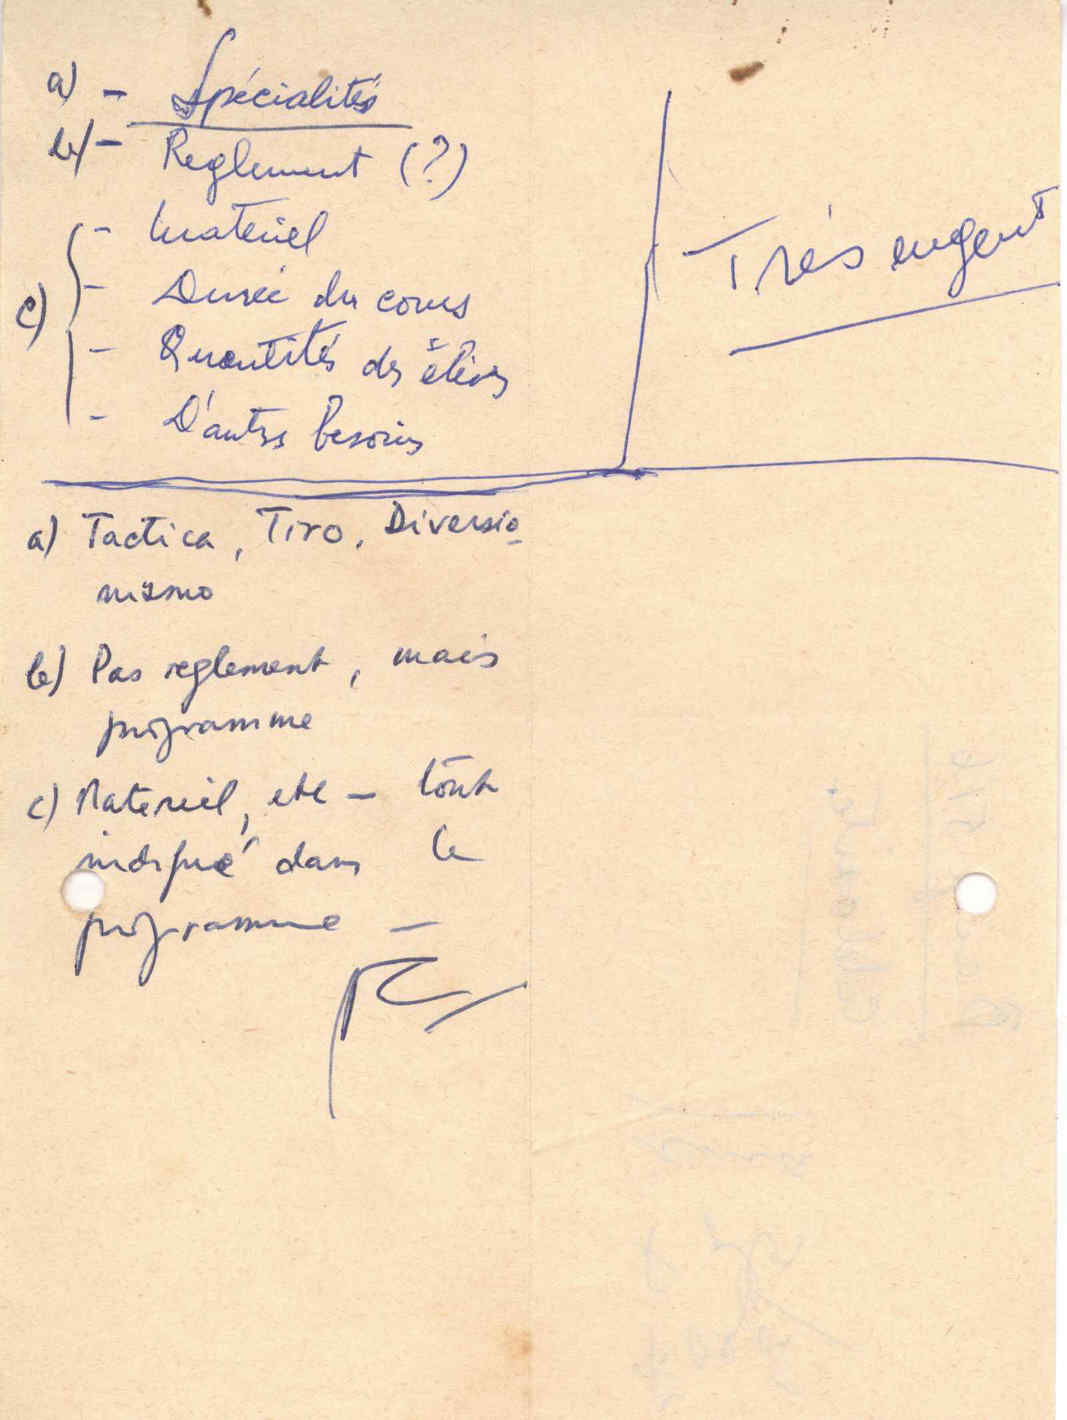 a) - Spécialités
b) - Reglement (?)
- Materiel
c) - Durée du cours
- Quantités des élèves
- D'autres besoins
Très urgent
a) Tactica, Tiro, Diversio-
nismo
b) Pas reglement, mais
programme
c) Materiel, etc - tout
indiqué dans le
programme -